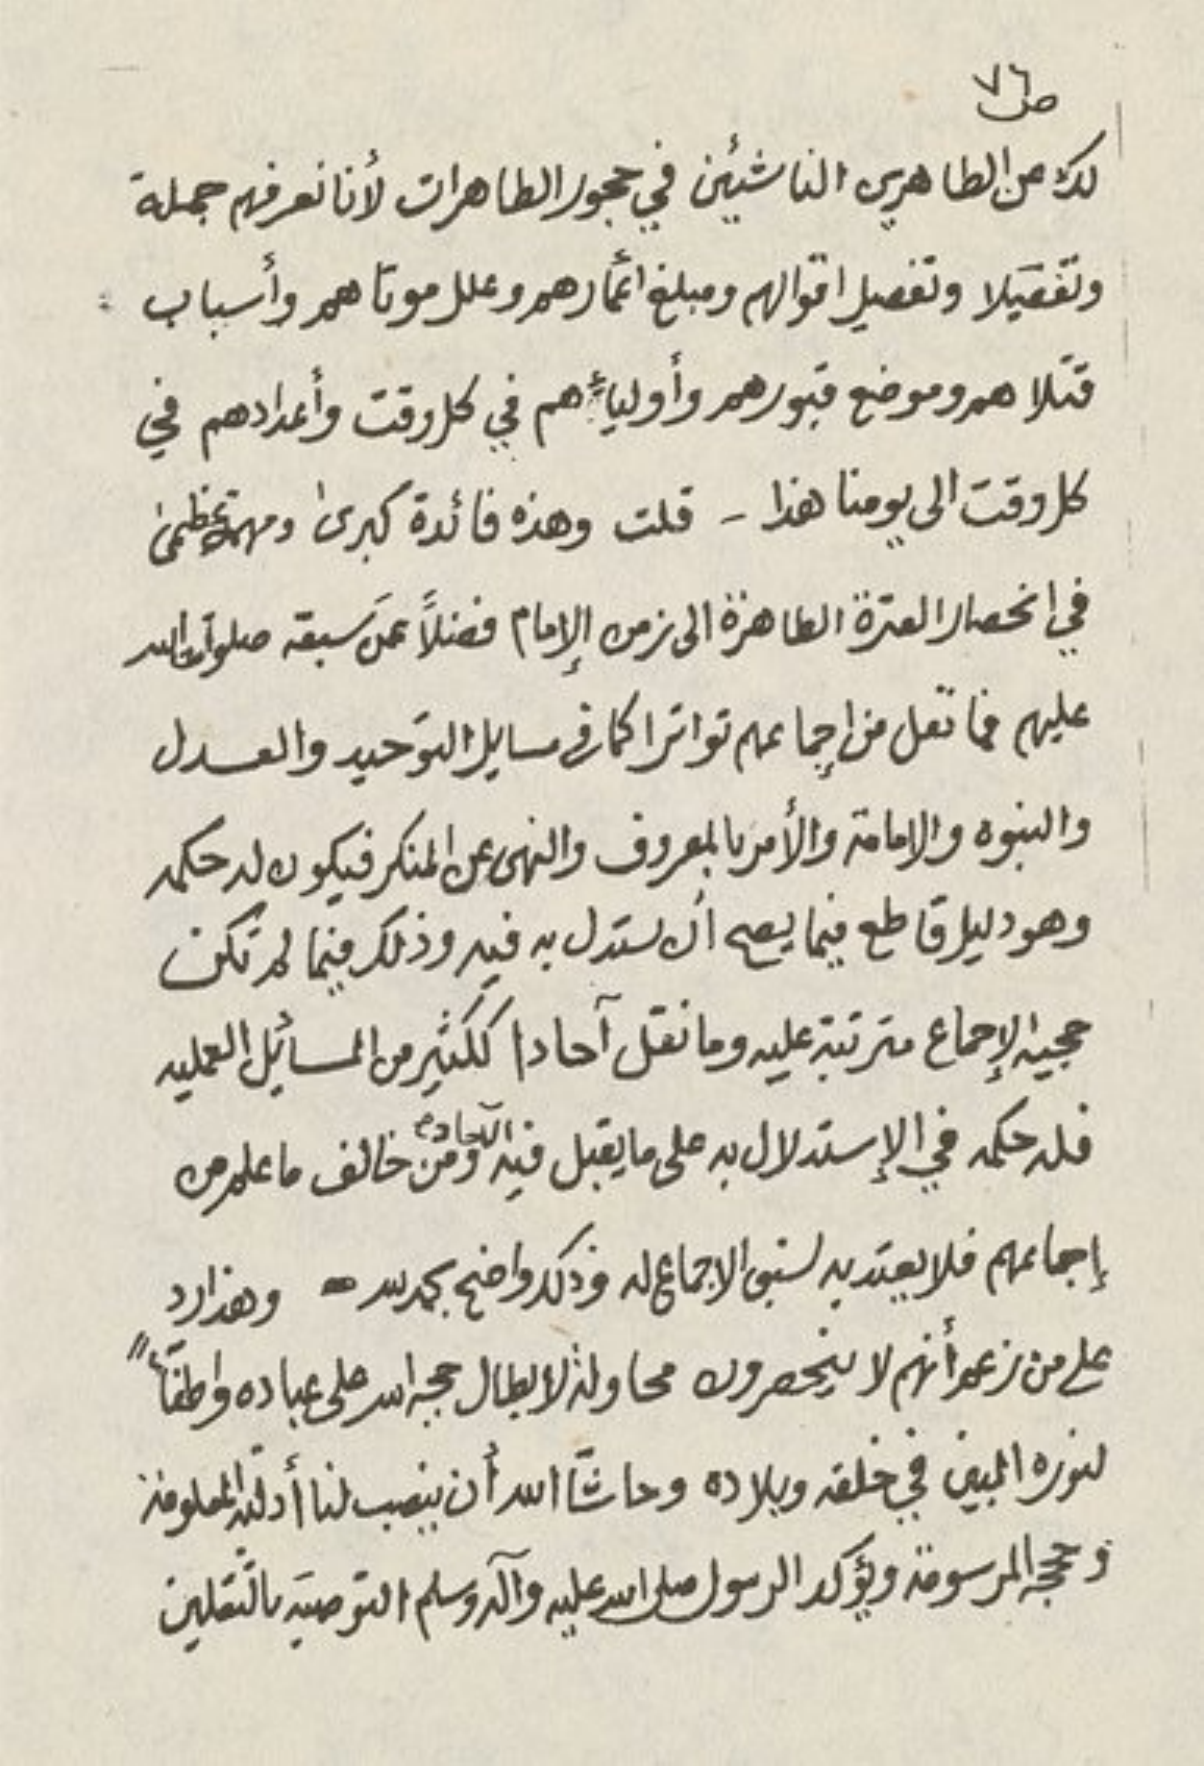 ص ٧٦
لك من الطاهرين الناشئين في حجور الطاهرات لأنا نعرفهم جملة
وتفصيلا وتفصيل اقوالهم ومبلغ اعمارهم وعلل موتاهم وأسباب
قتلاهم وموضع قبورهم وأولياءهم في كل وقت وأعدادهم في
كل وقت الى يومنا هذا - قلت وهذه فائدة كبرى ومهمة عظمى
في انحصار العترة الطاهرة الى زمن الإمام فضلاً عمن سبقه صلوات الله
عليهم فما نقل من إجماعهم تواترا كما في مسايل التوحيد والعدل
والنبوه والامامة والأمر بالمعروف والنهى عن المنكر فيكون له حكمه
وهو دليل قاطع فيما يصح أن يستدل به فيه وذلك فيما لم تكن
حجيه الإجماع مترتبة عليه وما نقل آحادا ككثير من المسائل العمليه
فله حكمه في الإستدلال به على ما يقبل فيه الآحادي ومن خالف ما علم من
إجماعهم فلا يعتد به لسبق الاجماع له وذلك واضح بحمد لله - وهذا رد
على من زعم أنهم لا ينحصرون محاولة لابطال حجه الله على عباده واطفاً"
لنوره المبين في خلقه وبلاده وحاشا الله أن ينصب لنا أدلته المعلومة
وحججه المرسومة ويؤكد الرسول صلى الله عليه وآله وسلم التوصية بالثقلين